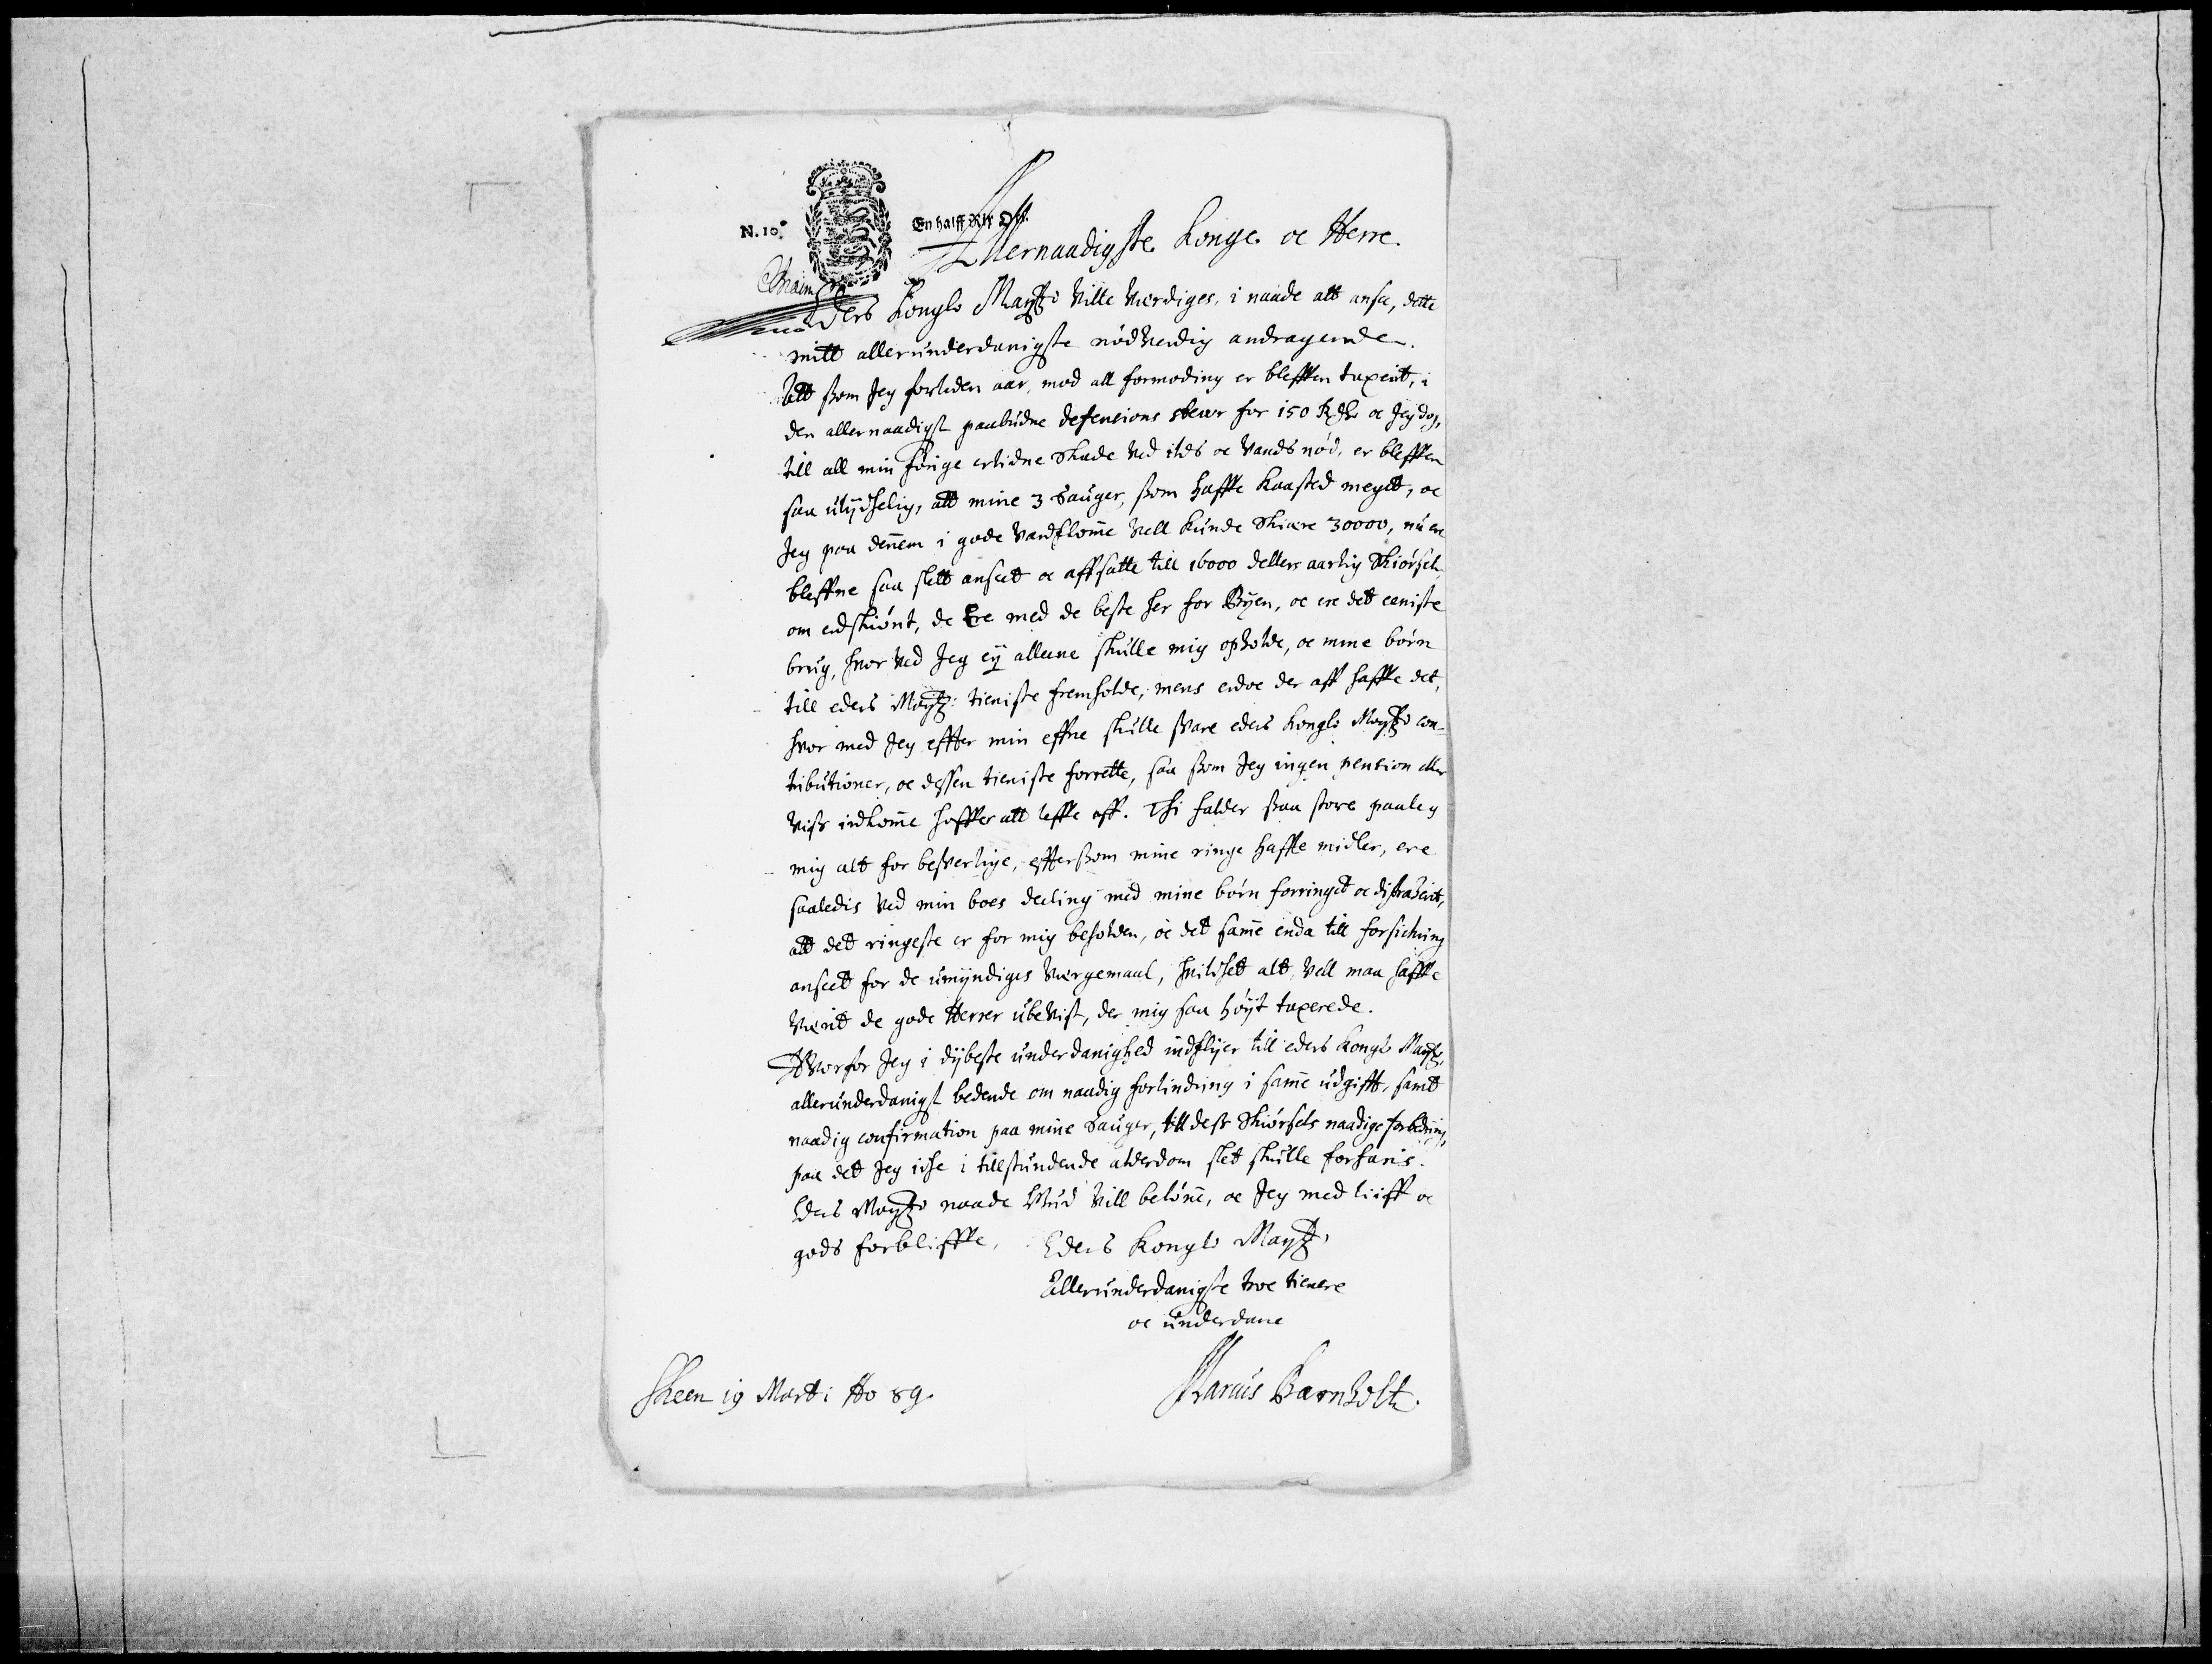 N. 10.
En halff Rix Dlr.
Allernaadigste Konge oc Herre.
Eders Kongls Maytz Wille Werdiges, i naade att ansee, dette
mitt allerunderdanigste nødwendig andragende.
Att som Jeg forleden aar, mod all formoding er bleffven taxerit, i
den allernaadigst paabudne defensions skatt for 150 Rdlr oc Jeg dog,
till all min forige erlidne Skade wed ilds oc Vands nød, er bleffven
saa ulydselig, att mine 3 Sauger, som haffve kaasted meget, oc
Jeg paa dennem i gode Vandflomme well kunde Skiære 30000, nu ere
bleffne saa slett anseet oc affsatte till 16000 dellers aarlig Skiørsel,
om endskiønt, de Ere med de beste her for Byen, oc ere det eeniste
brug, hvor ved Jeg ey alleene skulle mig opholde, oc mine børn
till eders Maytz: tieniste fremholde, mens endoc der aff haffve det,
hvor med Jeg effter min effne skulle svare eders Kongls Maytz con-
tributioner, oc dessen tieniste forrette, saa som Jeg ingen pension eller
viss indkomme haffver att leffve aff. Thi falder saa store paaleg
mig alt for besverlige, efftersom mine ringe haffte midler, ere
saaledis ved min boes deeling med mine børn forringet oc distraherit,
att det ringeste er for mig beholden, oc det samme enda till forsichring
anseet for de umyndiges Wergemaal, hvilchet alt, Vell maa haffve
Værit de gode Herrer ubevist, der mig saa høyt taxerede.
Hvorfor Jeg i dybeste underdanighed indflyer till eders Kongls Maytz,
allerunderdanigst bedende om naadig forlindring i samme udgifft, samt
naadig confirmation paa mine Sauger, till dess Skiørsels naadige forbedring,
paa det Jeg icke i tillstundende alderdom slet skulle forfaris.
Eders Maytz naade Gud Vill belønne, oc Jeg med liiff oc
gods forbliffve, Eders Kongls Maytz,
Allerunderdanigste troe tienere
oc underdane
Skeen 19 Marti Ao 89.
Marcus Barnholt.